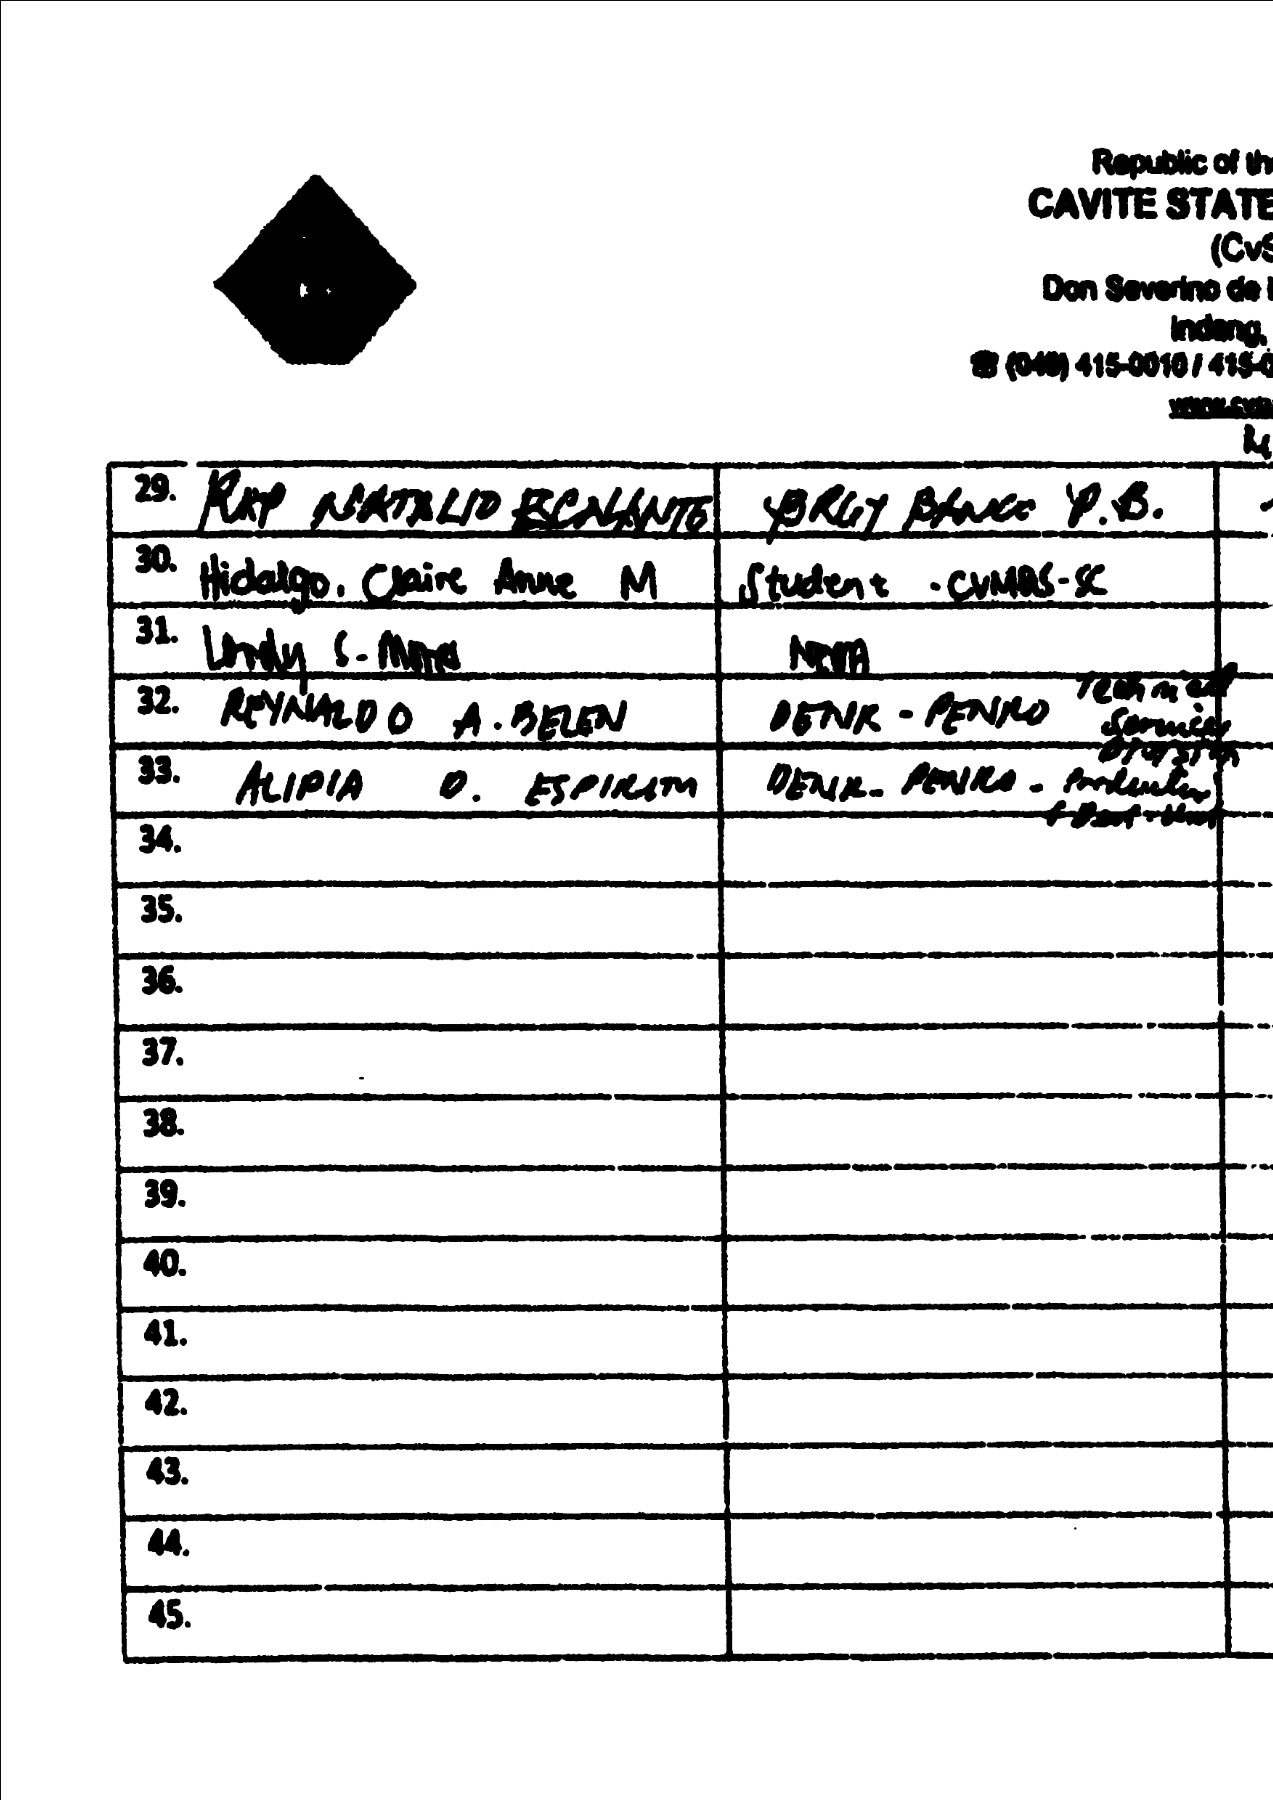 Republic of the
CAVITE STATE
(CvS
Don Severino de
Indang,
☎ (046) 415-0010 / 415-0
29. NATALIO ESCALANTE BRGY P.B.
30. Hidalgo, Claire Anne M Student - CVMBS-SC
31. S.
32. REYNALDO A. BELEN DENR - PENRO Technical
Services
Division
33. ALIPIA O. ESPIRITU DENR - PENRO -
34.
35.
36.
37.
38.
39.
40.
41.
42.
43.
44.
45.